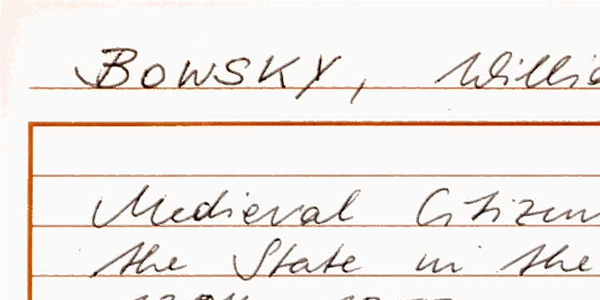 BOWSKY, Willia
Medieval Citizen
the State in the